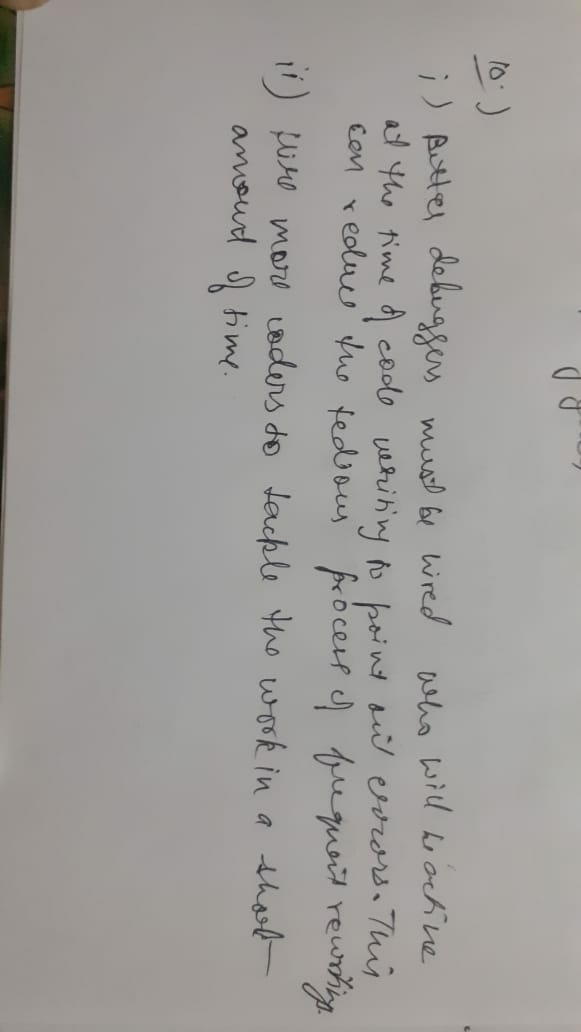 10.)
i) Better debuggers must be hired who will be active
at the time of code writing to point out errors. This
can reduce the tedious process of frequent rewriting.
ii) Hire more coders to tackle the work in a short
amount of time.